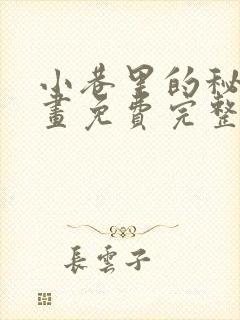 小巷里的秘
畫免費完整
長雲子